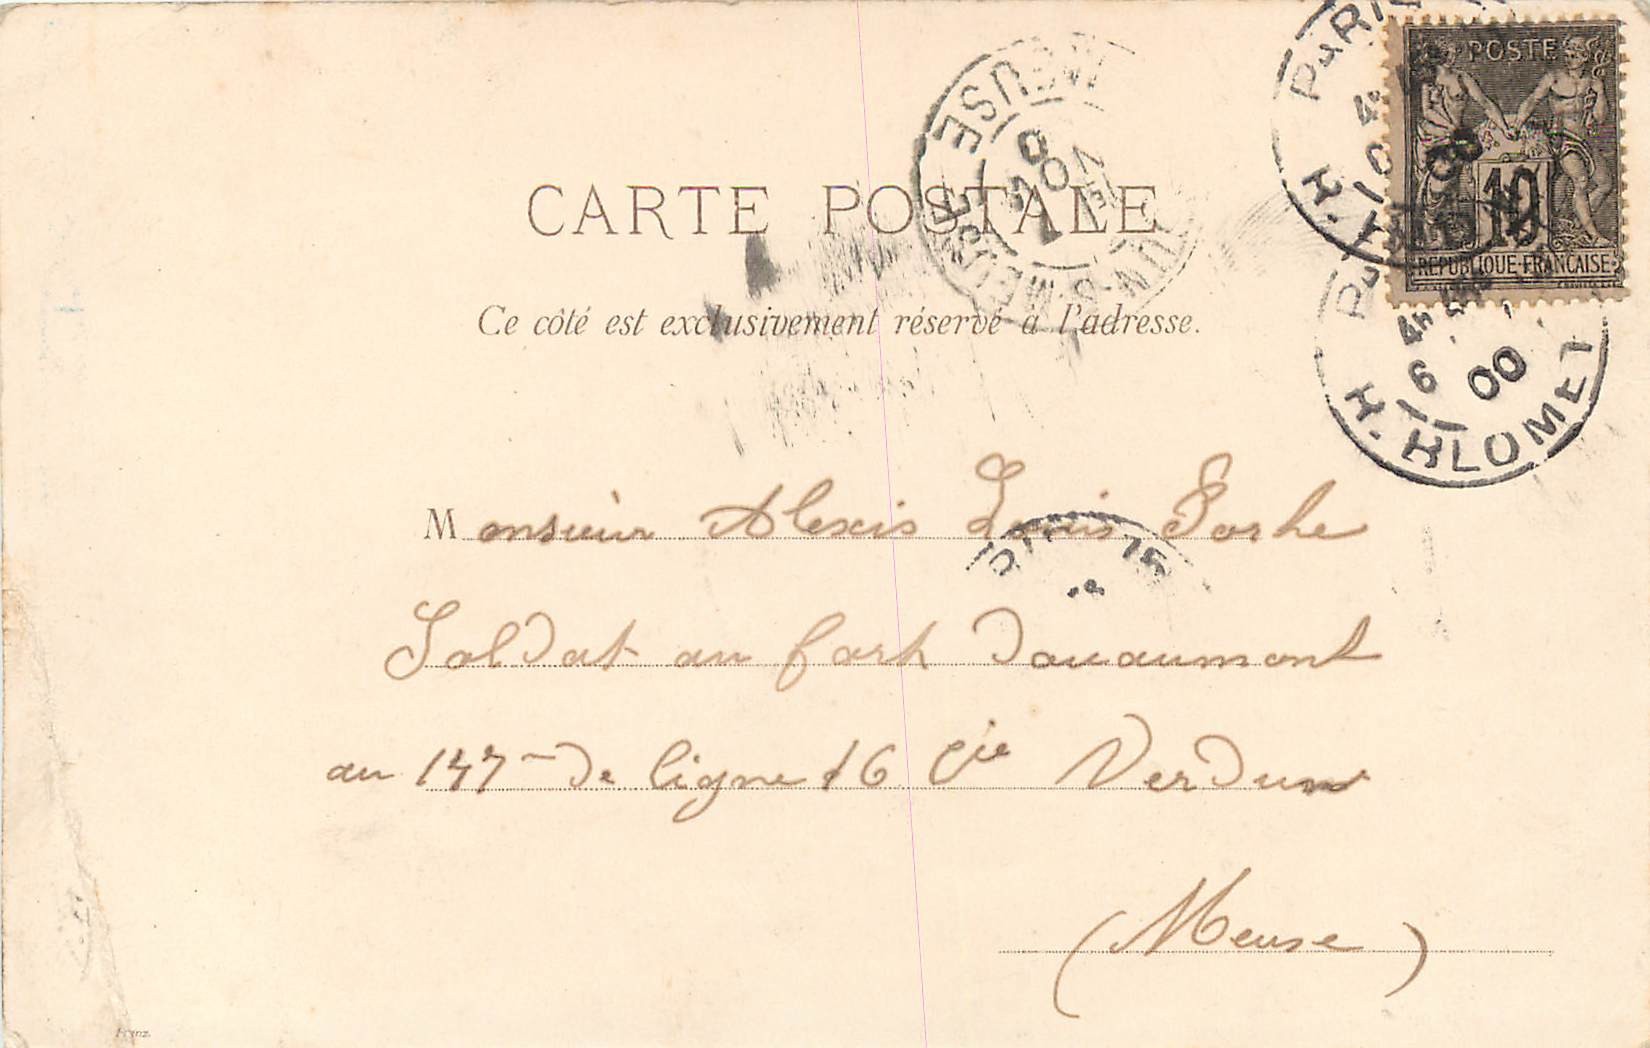 CARTE POSTALE
Ce côté est exclusivement réservé à l'adresse.
POSTE
10
REPUBLIQUE FRANÇAISE
PARIS
R. BLOMET
16
00
MEUSE
Monsieur Alexis Louis
Soldat au fort Douaumont
au 147 de ligne 16 Cie Verdun
(Meuse)
PARIS 15
Franz.